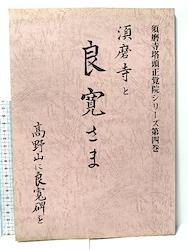 須磨寺塔頭正覚院シリーズ第四巻
須磨寺と
良寛さま
高野山に良寛碑を